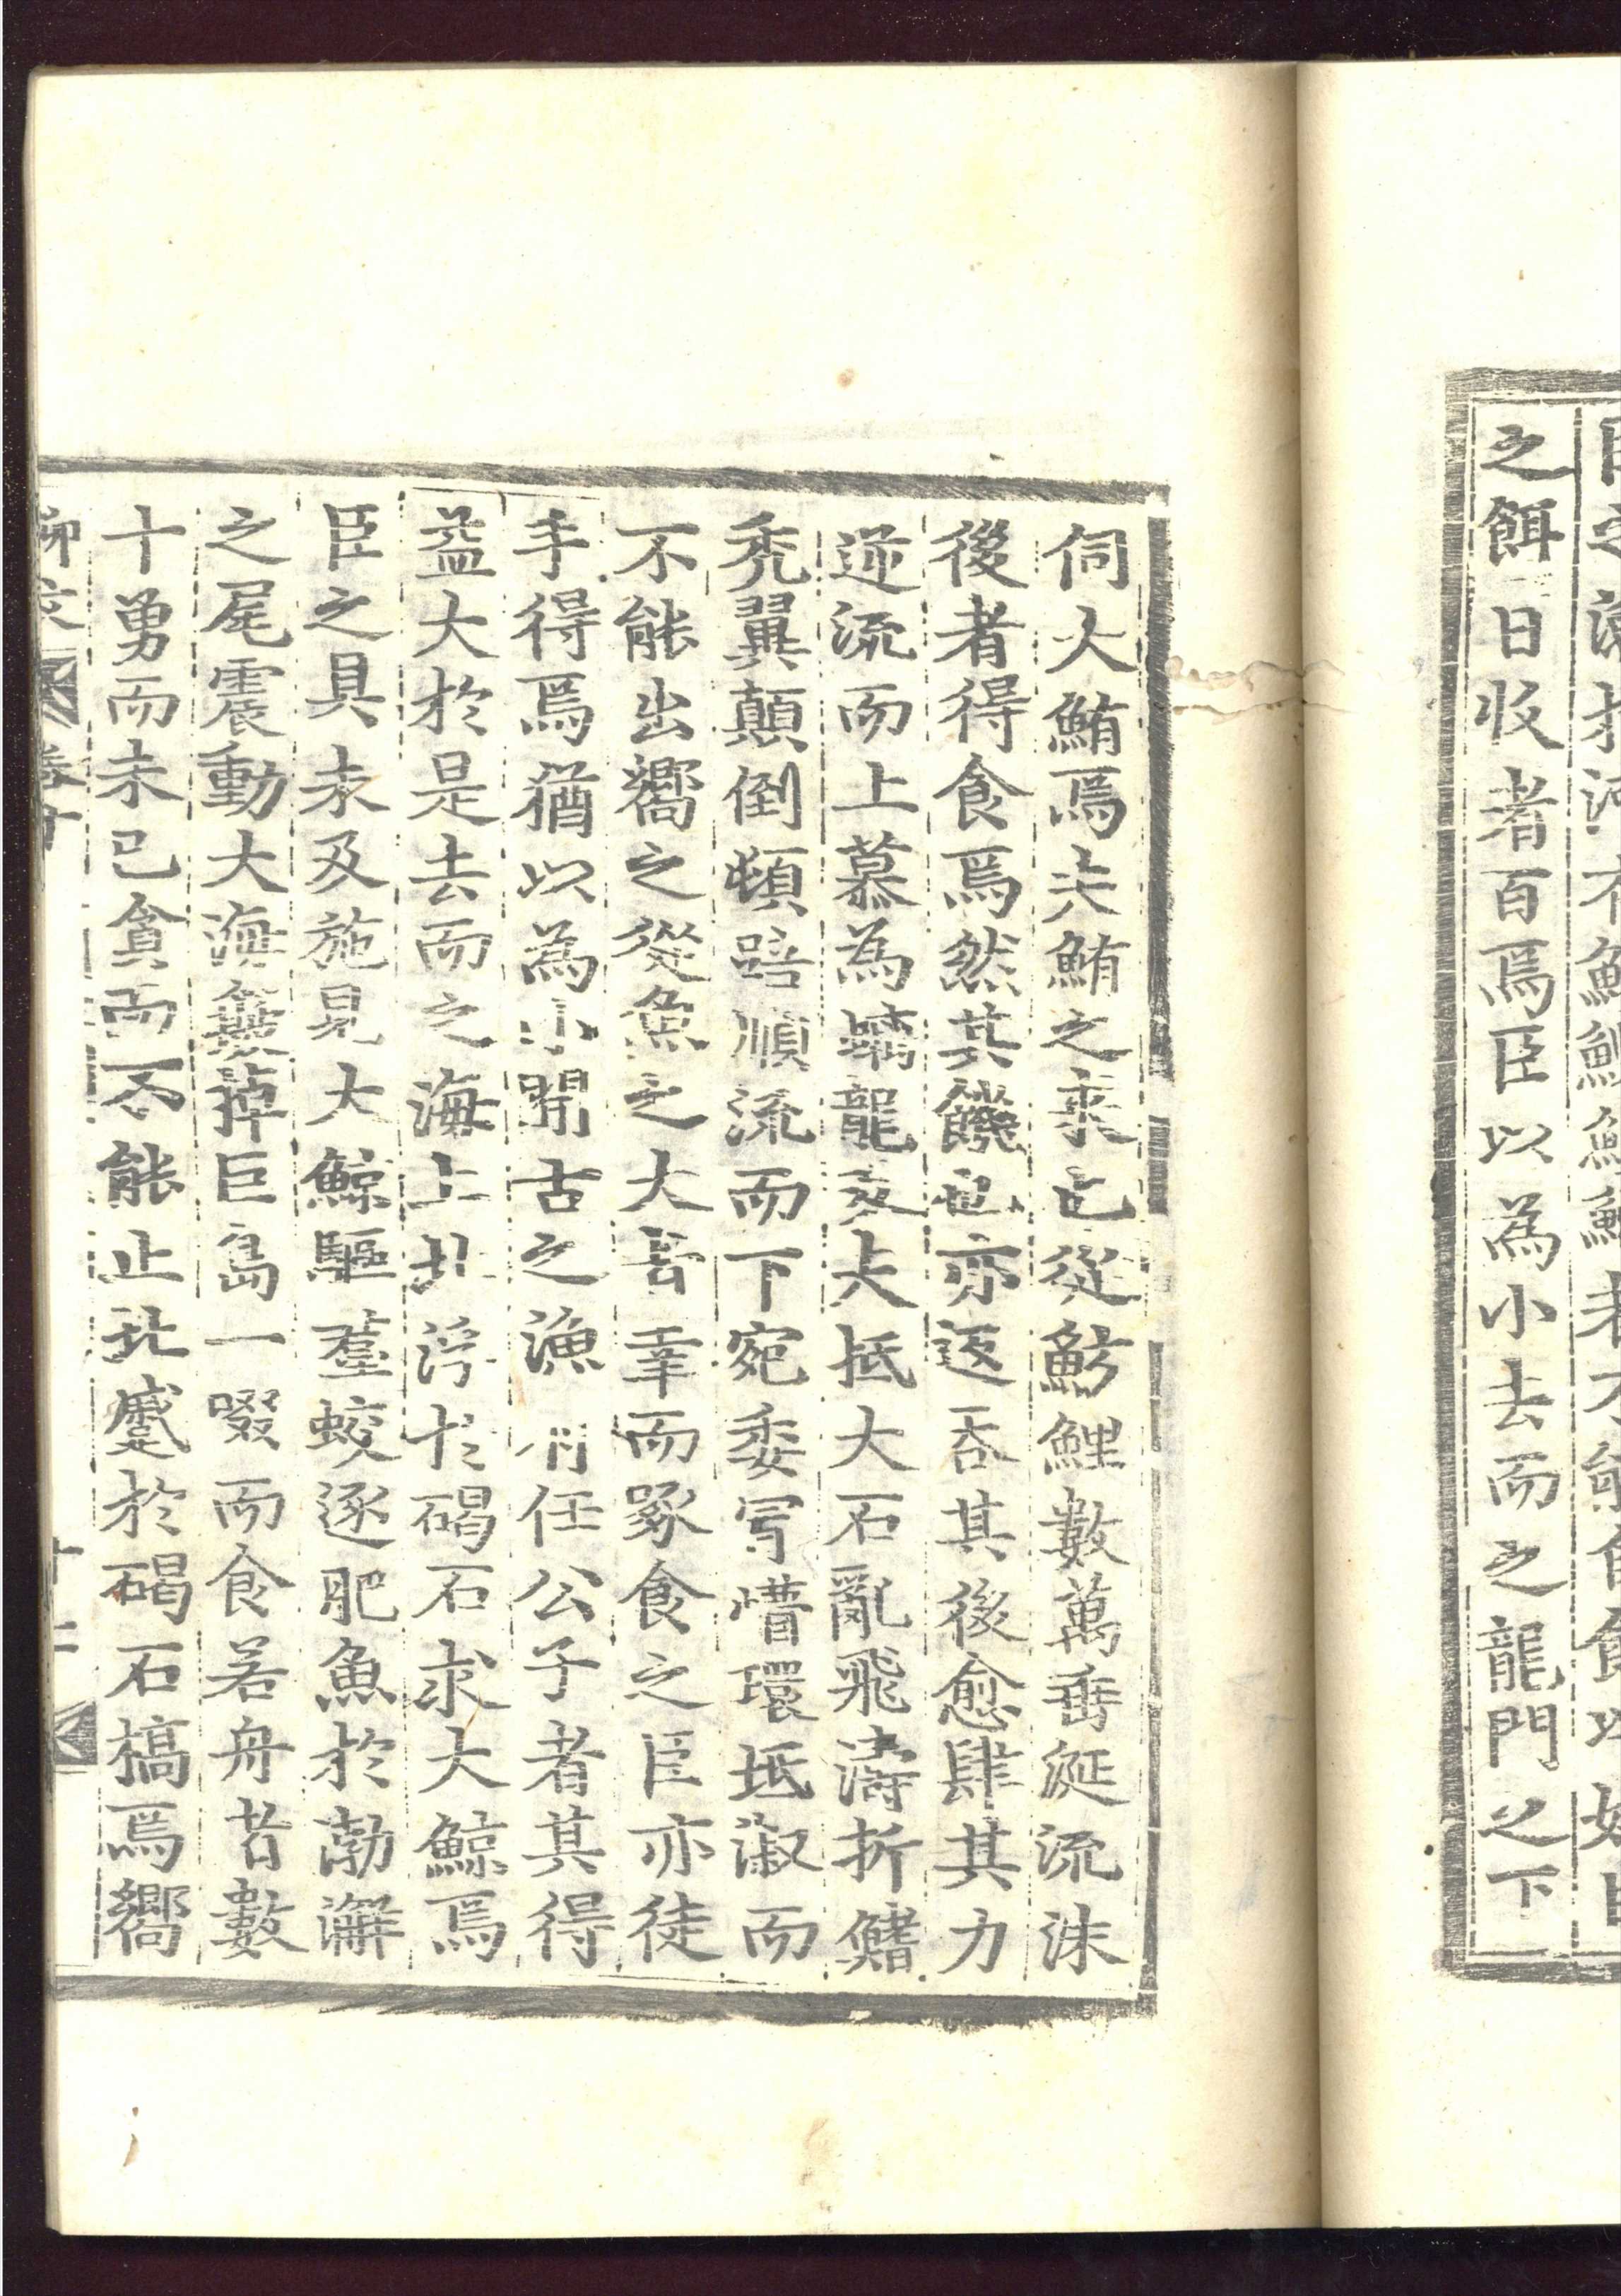 之餌日收者百焉臣以為小去而之龍門之下
伺大鮪焉夫鮪之來也從魴鯉數萬垂涎流沫
後者得食焉然其饑也亦返吞其後愈肆其力
逆流而上慕為螭龍及夫抵大石亂飛濤折鰭
禿翼顛倒頓踣順流而下宛委冩懵環坻漵而
不能出嚮之從魚之大者幸而啄食之臣亦徒
手得焉猶以為小聞古之漁有任公子者其得
益大於是去而之海上北浮於碣石求大鯨焉
臣之具未及施見大鯨驅羣蛟逐肥魚於渤澥
之尾震動大海簸掉巨島一啜而食若舟者數
十勇而未已貪而不能止北蹙於碣石槁焉嚮
柳文 卷十
十二